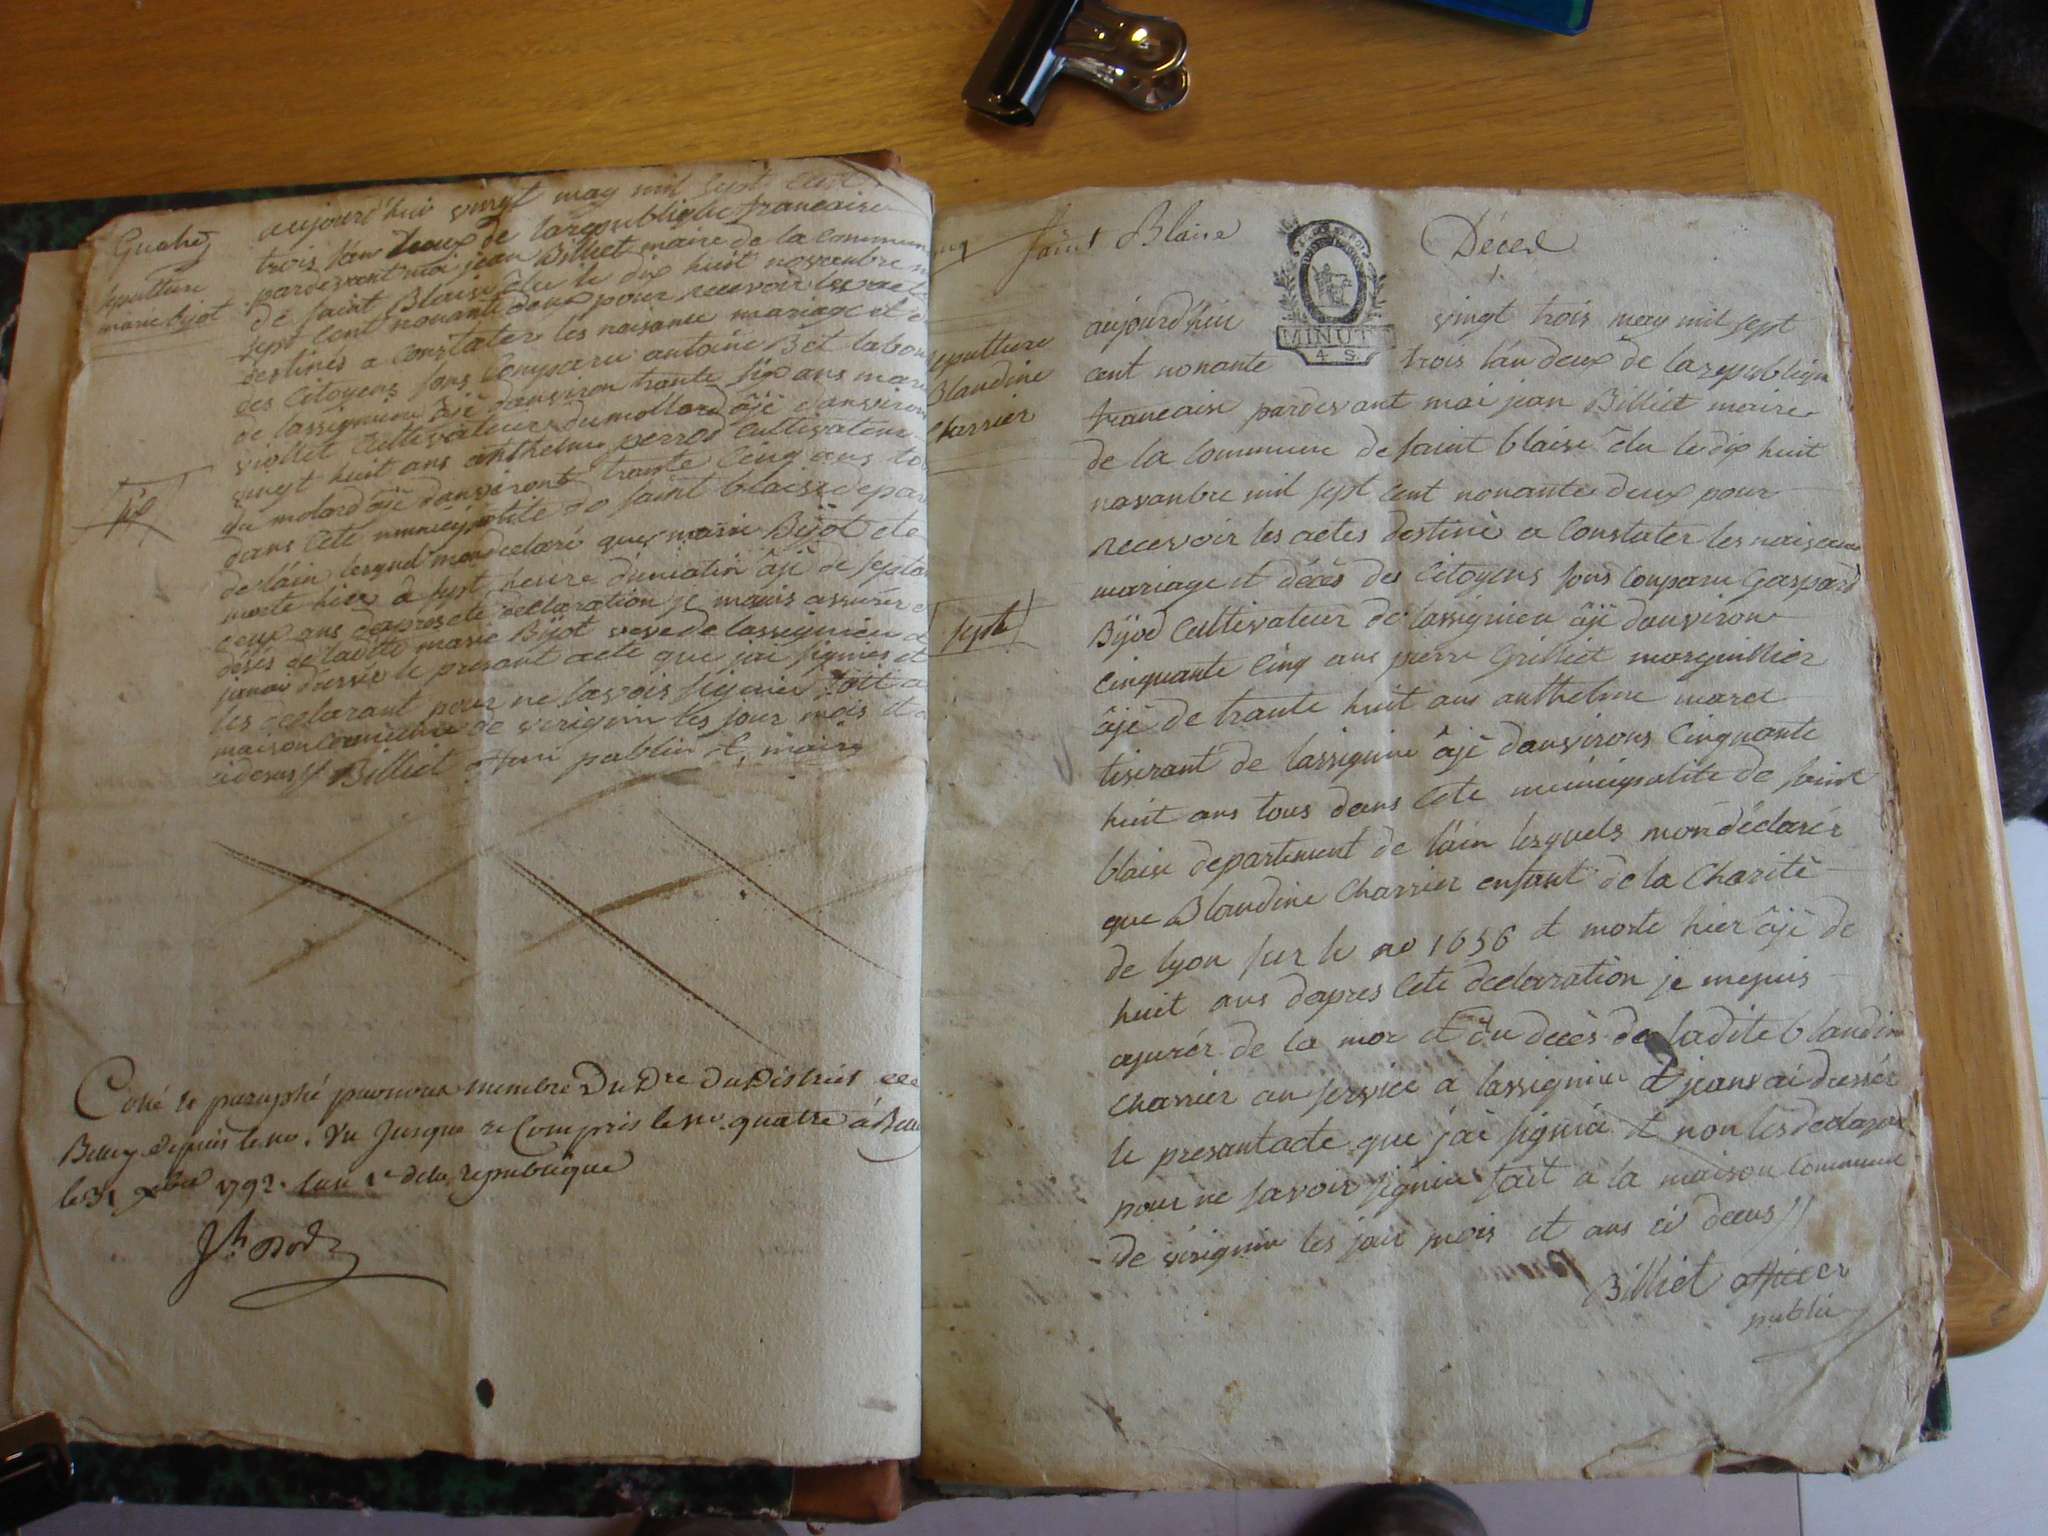 aujourd'hui vingt may mil sept cent
trois l'an deux de la republique francaise
pardevant moi jean Billiet maire de la commun
de saint Blaise élu le dix huit novanbre
sept cent nonante deux pour recevoir les act
destinés a constater les naisance mariage et
des Citoyens sons conparu antoine Bet labou
de lassignieu âjé danviron trante six ans mar
viollet Cultivateur du mollard âjé danviron
vingt huit ans anthelme perrod cultivateur
du molard âjé danviront trante cinq ans to
dans cete municipalité de saint blaise depar
de lain lesquel mon declaré que marie Bijot ete
morte hier a sept heure du matin âjé de septa
deux ans dapres cete declaration je mauis assurér
desés de ladite marie Bijot veve de lassignieu
janai dressér le presant acte que jai signiér et
les declarant pour ne savoir signier fait a
maison commune de virignin les jour mois et
cidesus // Billiet publin et maire
sepulture
marie bijot
Coté et paraphé par nous membre Du D.re Du District de
Belley depuis le no. Un Jusque et Compris le no. quatre á Bell
le 31 xbre 1792. lan 1er de la republique
saint Blaise
Décex
MINUT
4 S.
aujourdhui vingt trois may mil sept
cent nonante trois lan deux de la republiqu
francaise pardevant moi jean Billiet maire
de la commune de saint blaise élu le dix huit
novanbre mil sept cent nonante deux pour
recevoir les actes destiné a constater les naisance
mariage et décès des Citoyens sons conparu Gaspard
Bijod cultivateur de lassignieu âjé danviron
cinquante cinq ans pierre Grilliet marguillier
âjé de trante huit ans anthelme maret
tiserant de lassignieu âjé danvirons cinquante
huit ans tous dans cete municipalité de saint
blaise departement de lain lesquels mon déclarér
que Blandine Charrier enfant de la Charité
de lyon sur le no 1656 et morte hier âjé de
huit ans dapres cete declaration je me suis
asurér de la mor et du decès de ladite blandine
charrier au service a lassignieu et jeans ai dressér
le presant acte que j'ai signié et non les declaran
pour ne savoir signier fait a la maison commune
de virignin les jour mois et ans ci desus //
Billiet officer
public
sepulture
Blandine
Charrier
sept